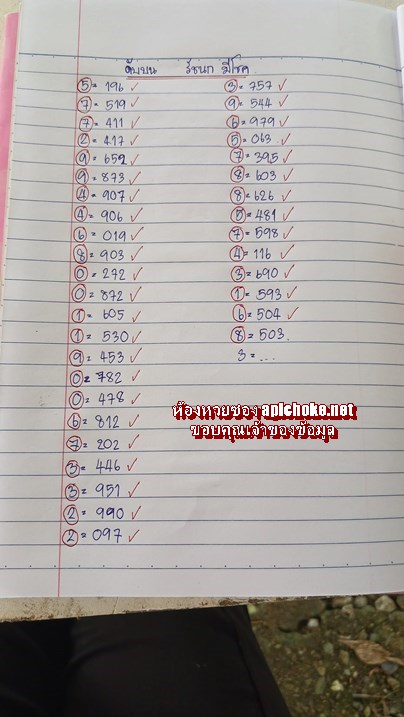 ดับบน รัชนก มีโชค
5 = 196 ✓
7 = 519 ✓
7 = 411 ✓
2 = 417 ✓
9 = 652 ✓
9 = 873 ✓
4 = 907 ✓
4 = 906 ✓
6 = 019 ✓
8 = 903 ✓
0 = 272 ✓
0 = 872 ✓
1 = 605 ✓
1 = 530 ✓
9 = 453 ✓
0 = 782 ✓
0 = 478 ✓
6 = 812 ✓
7 = 202 ✓
3 = 446 ✓
3 = 951 ✓
2 = 990 ✓
2 = 097 ✓
3 = 757 ✓
9 = 544 ✓
6 = 979 ✓
5 = 063 ✓
7 = 395 ✓
8 = 603 ✓
8 = 626 ✓
5 = 481 ✓
7 = 598 ✓
4 = 116 ✓
3 = 690 ✓
1 = 593 ✓
6 = 504 ✓
8 = 503.
3 = ...
ห้องหวยซอง apichoke.net
ขอบคุณเจ้าของข้อมูล